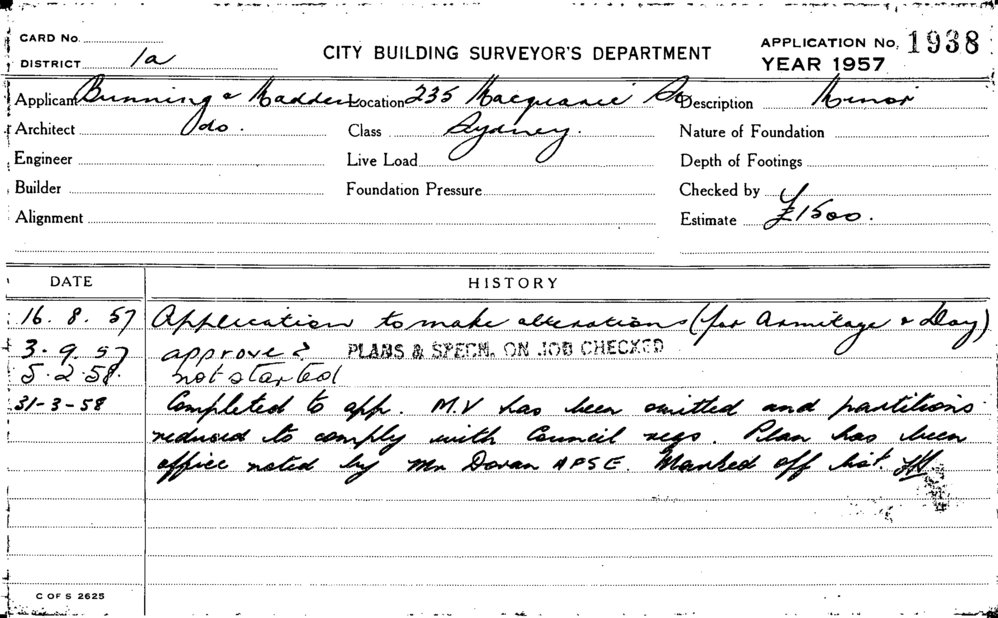 CARD No.
DISTRICT 1a
CITY BUILDING SURVEYOR'S DEPARTMENT
APPLICATION No. 1938
YEAR 1957
Applicant Bunning & Madden Location 235 Macquarie St Description Minor
Architect do. Class Sydney. Nature of Foundation
Engineer Live Load Depth of Footings
Builder Foundation Pressure Checked by
Alignment Estimate £1500.
DATE HISTORY
16. 8. 57 Application to make alterations (for Armitage & Day)
3. 9. 57 approved PLANS & SPECN. ON JOB CHECKED
5. 2. 58. not started
31-3-58 Completed to app. M.V has been omitted and partitions
reduced to comply with Council regs. Plan has been
office noted by Mr Doran APSE. Marked off list.
C OF S 2625